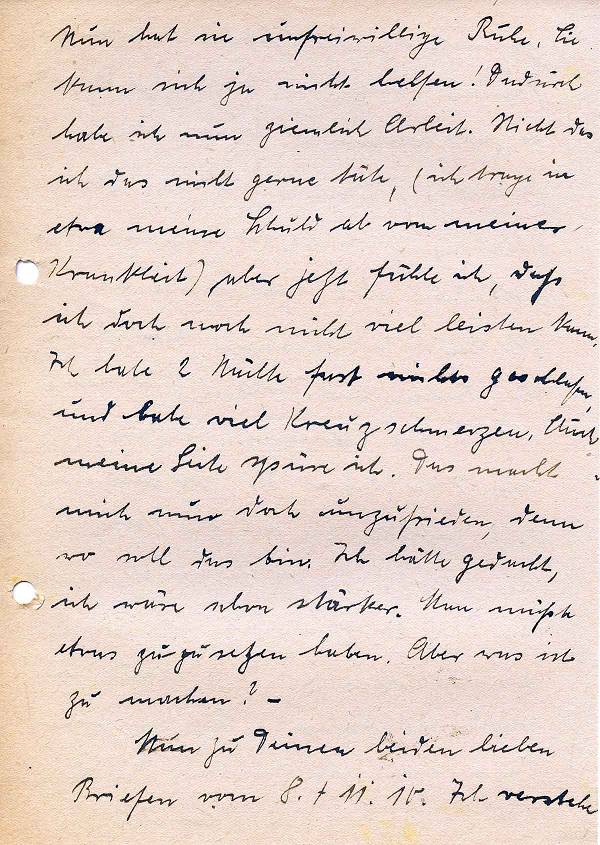 Nun hat sie unfreiwillige Ruhe. Sie
kann sich ja nicht helfen! Dadurch
habe ich nun ziemlich Arbeit. Nicht das
ich das nicht gerne täte, (ich trage in
etwa meine Schuld ab von meiner
Krankheit) aber jetzt fühle ich, daß
ich doch noch nicht viel leisten kann.
Ich habe 2 Nächte fast nichts geschlafen,
und habe viel Kreuzschmerzen. Auch
meine Seite spüre ich. Das macht
mich nun doch unzufrieden, denn
wo soll das hin. Ich hätte gedacht,
ich wäre schon stärker. Man müßte
etwas zuzusetzen haben. Aber was ist
zu machen? –
Nun zu Deinen beiden lieben
Briefen vom 8. + 11. 10. Ich verstehe